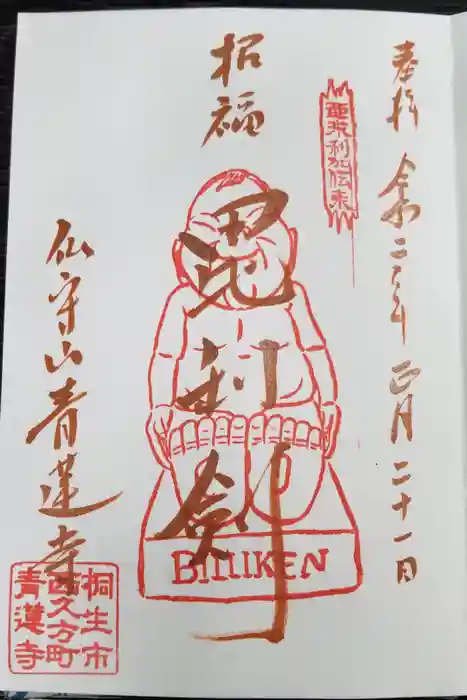 奉拝 令和二年 正月 二十一日
亜米利加伝来
招福
毘利剣
BILLIKEN
仏守山青蓮寺
桐生市
西久方町
青蓮寺